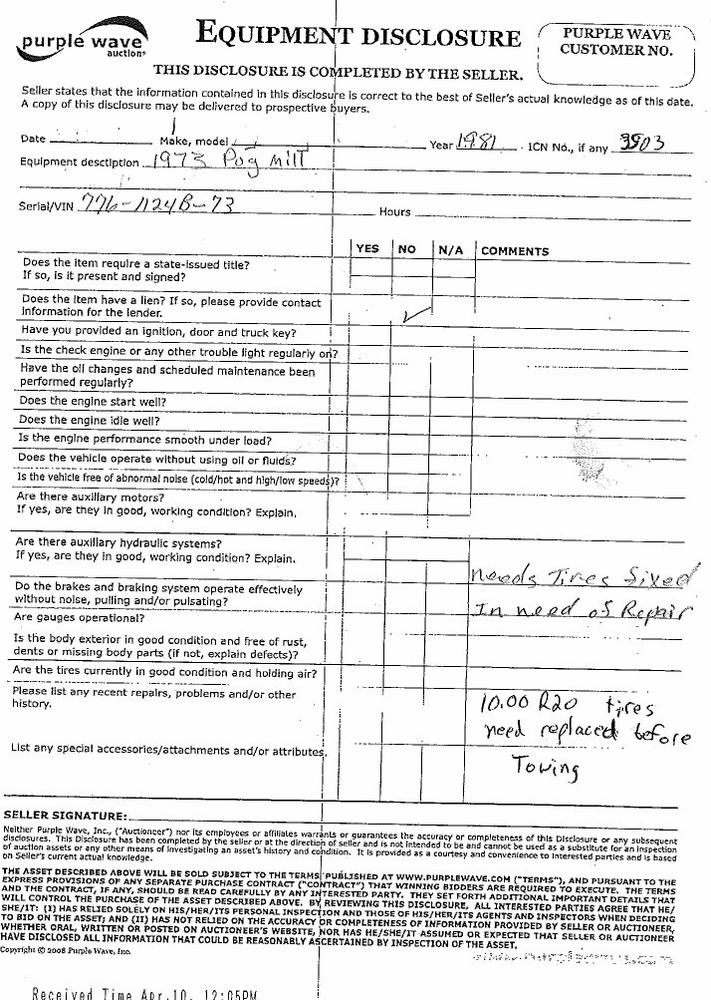 purple wave
auction®
EQUIPMENT DISCLOSURE
PURPLE WAVE
CUSTOMER NO.
THIS DISCLOSURE IS COMPLETED BY THE SELLER.
Seller states that the information contained in this disclosure is correct to the best of Seller's actual knowledge as of this date.
A copy of this disclosure may be delivered to prospective buyers.
Date Make, model Year 1981 ICN No., if any 3903
Equipment description 1973 Pug Mill
Serial/VIN 776-1124B-73
Hours
YES NO N/A COMMENTS
Does the item require a state-issued title?
If so, is it present and signed?
Does the item have a lien? If so, please provide contact
information for the lender. ✓
Have you provided an ignition, door and truck key?
Is the check engine or any other trouble light regularly on?
Have the oil changes and scheduled maintenance been
performed regularly?
Does the engine start well?
Does the engine idle well?
Is the engine performance smooth under load?
Does the vehicle operate without using oil or fluids?
Is the vehicle free of abnormal noise (cold/hot and high/low speeds)?
Are there auxiliary motors?
If yes, are they in good, working condition? Explain.
Are there auxiliary hydraulic systems?
If yes, are they in good, working condition? Explain.
needs Tires Sixed
Do the brakes and braking system operate effectively
without noise, pulling and/or pulsating?
In need of Repair
Are gauges operational?
Is the body exterior in good condition and free of rust,
dents or missing body parts (if not, explain defects)?
Are the tires currently in good condition and holding air?
Please list any recent repairs, problems and/or other
history.
10.00 R20 tires
need replaced before
List any special accessories/attachments and/or attributes.
Towing
SELLER SIGNATURE:
Neither Purple Wave, Inc., ("Auctioneer") nor its employees or affiliates warrants or guarantees the accuracy or completeness of this Disclosure or any subsequent
disclosures. This Disclosure has been completed by the seller or at the direction of seller and is not intended to be and cannot be used as a substitute for an inspection
of auction assets or any other means of investigating an asset's history and condition. It is provided as a courtesy and convenience to interested parties and is based
on Seller's current actual knowledge.
THE ASSET DESCRIBED ABOVE WILL BE SOLD SUBJECT TO THE TERMS PUBLISHED AT WWW.PURPLEWAVE.COM ("TERMS"), AND PURSUANT TO THE
EXPRESS PROVISIONS OF ANY SEPARATE PURCHASE CONTRACT ("CONTRACT") THAT WINNING BIDDERS ARE REQUIRED TO EXECUTE. THE TERMS
AND THE CONTRACT, IF ANY, SHOULD BE READ CAREFULLY BY ANY INTERESTED PARTY. THEY SET FORTH ADDITIONAL IMPORTANT DETAILS THAT
WILL CONTROL THE PURCHASE OF THE ASSET DESCRIBED ABOVE. BY REVIEWING THIS DISCLOSURE, ALL INTERESTED PARTIES AGREE THAT HE/
SHE/IT: (I) HAS RELIED SOLELY ON HIS/HER/ITS PERSONAL INSPECTION AND THOSE OF HIS/HER/ITS AGENTS AND INSPECTORS WHEN DECIDING
TO BID ON THE ASSET; AND (II) HAS NOT RELIED ON THE ACCURACY OR COMPLETENESS OF INFORMATION PROVIDED BY SELLER OR AUCTIONEER,
WHETHER ORAL, WRITTEN OR POSTED ON AUCTIONEER'S WEBSITE, NOR HAS HE/SHE/IT ASSUMED OR EXPECTED THAT SELLER OR AUCTIONEER
HAVE DISCLOSED ALL INFORMATION THAT COULD BE REASONABLY ASCERTAINED BY INSPECTION OF THE ASSET.
Copyright © 2008 Purple Wave, Inc.
Received Time Apr.10. 12:05PM